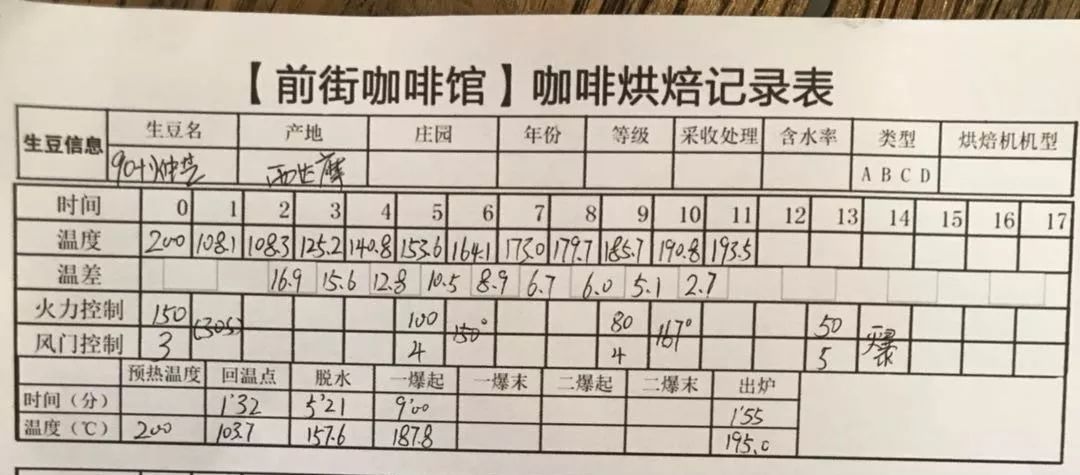 【前街咖啡馆】咖啡烘焙记录表
生豆信息 生豆名 产地 庄园 年份 等级 采收处理 含水率 类型 烘焙机机型
90+ A B C D
时间 0 1 2 3 4 5 6 7 8 9 10 11 12 13 14 15 16 17
温度 200 108.1 108.3 125.2 140.8 153.6 164.1 173.0 179.7 185.7 190.8 193.5
温差 16.9 15.6 12.8 10.5 8.9 6.7 6.0 5.1 2.7
火力控制 150 (30s) 100 150° 80 167° 50
风门控制 3 4 4 5
预热温度 回温点 脱水 一爆起 一爆末 二爆起 二爆末 出炉
时间(分) 1'32 5'21 9'00 1'55
温度(℃) 200 103.7 157.6 187.8 195.0